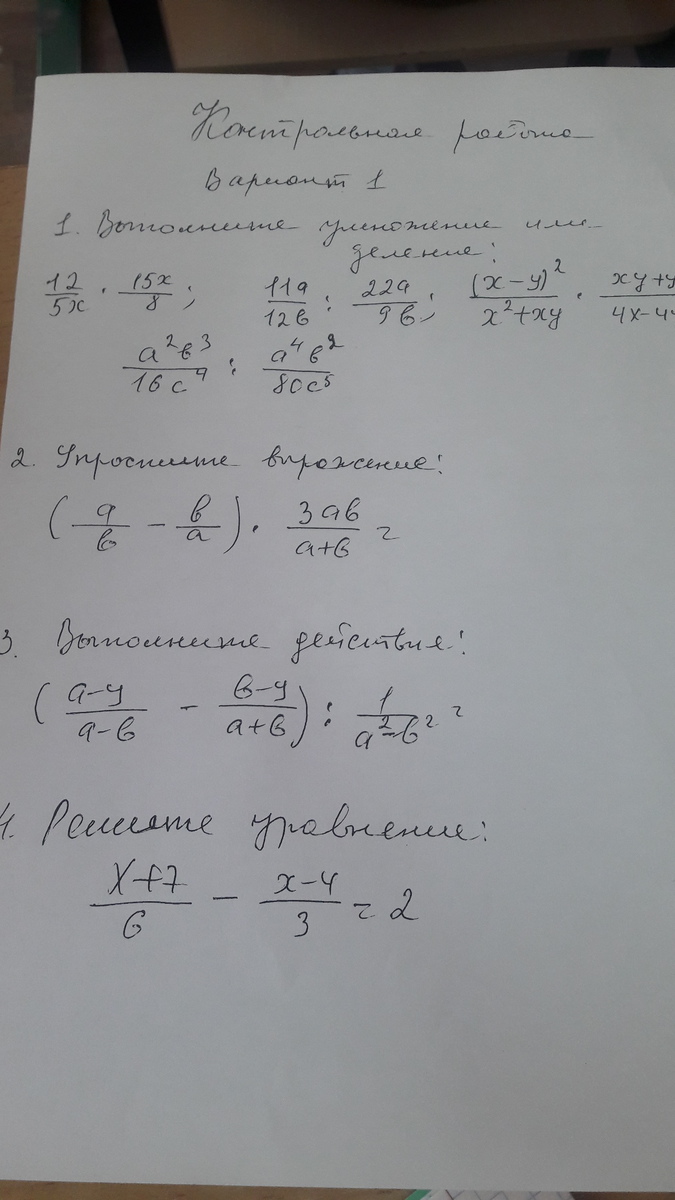 Контрольная работа
Вариант 1
1. Выполните умножение или
деление:
12/5x · 15x/8; 11a/12b : 22a/9b; (x-y)²/(x²+xy) · xy+y/4x-4
a²b³/16c⁴ : a⁴b²/80c⁵
2. Упростите выражение:
(a/b - b/a) · 3ab/(a+b) =
3. Выполните действия:
((a-y)/(a-b) - (b-y)/(a+b)) : 1/(a²-b²) =
4. Решите уравнение:
(x+7)/6 - (x-4)/3 = 2